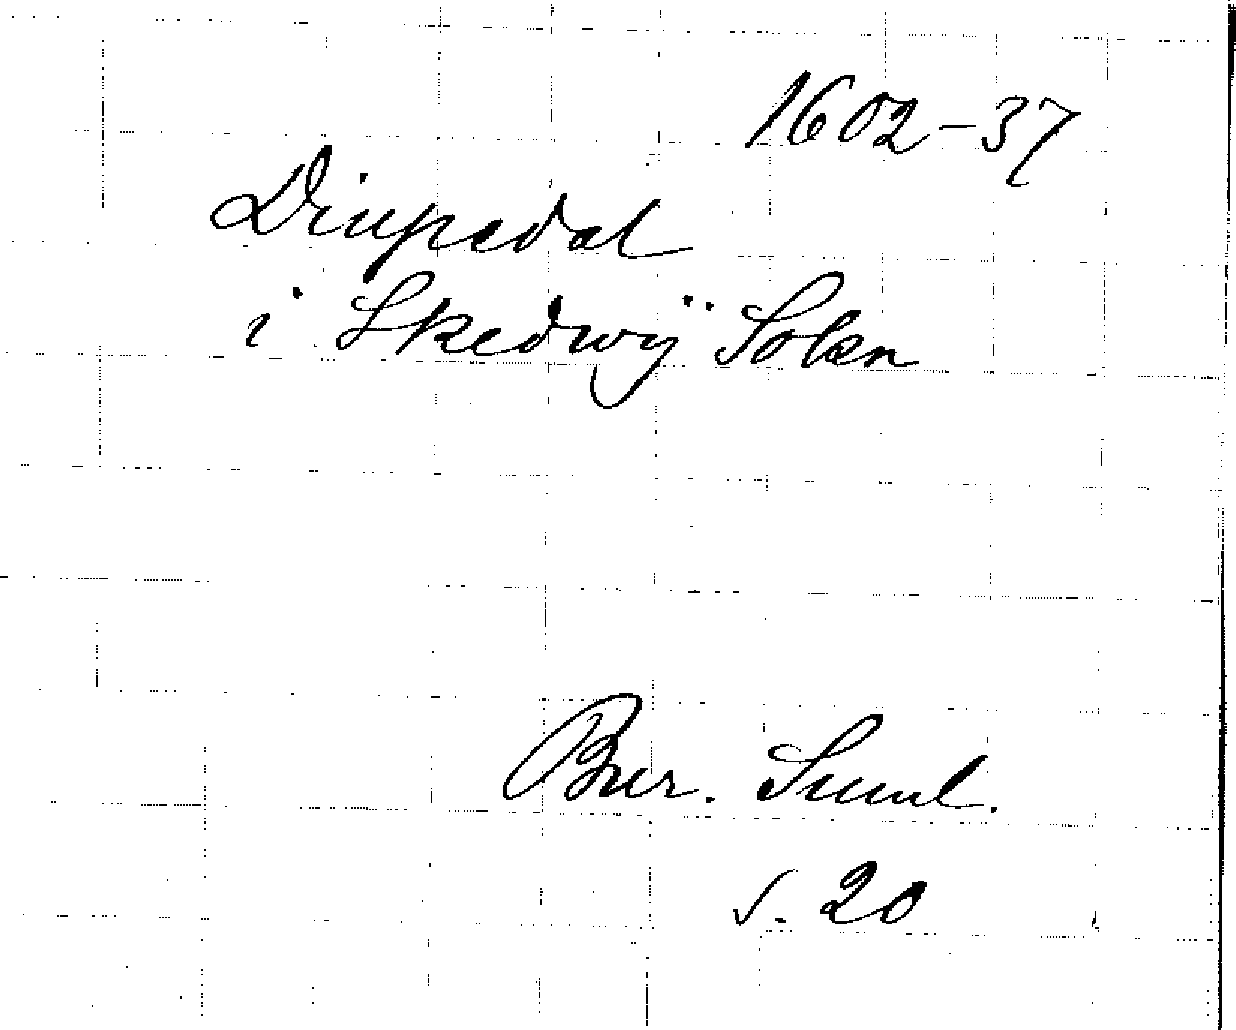 1602-37
Diupedal
i Skedwÿ Sokn
Bur. Suml.
s. 20